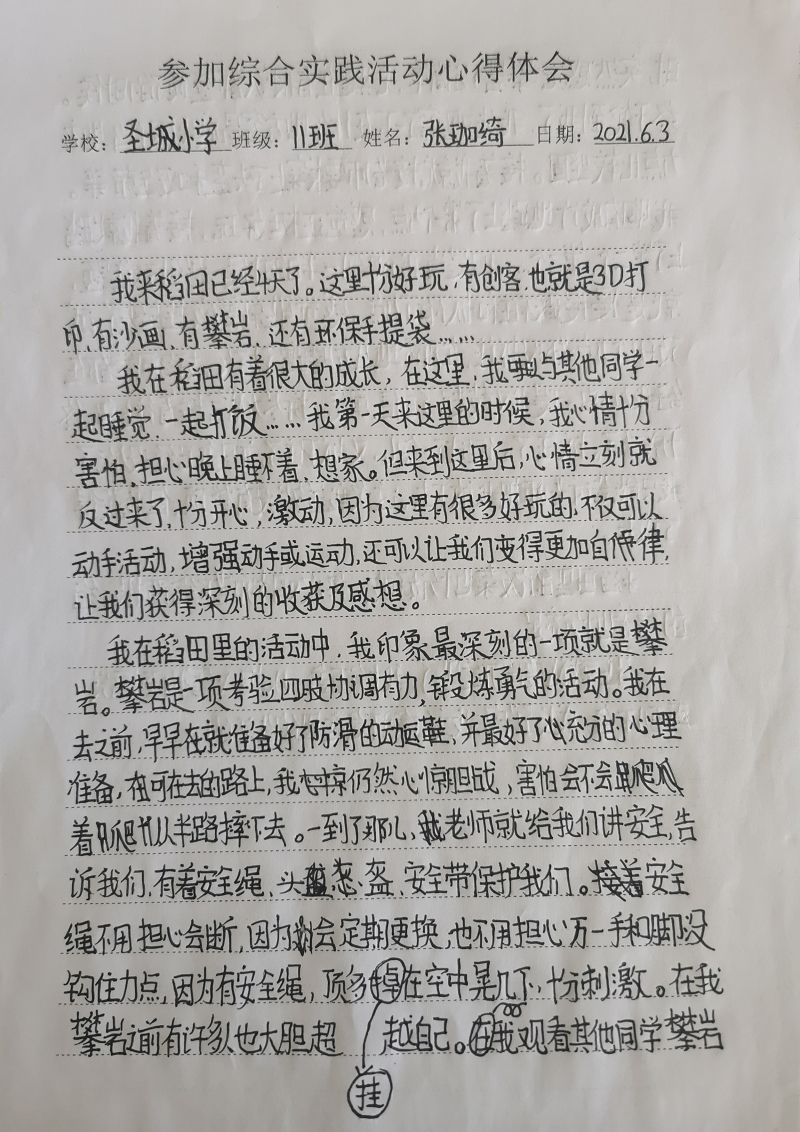 参加综合实践活动心得体会
学校：圣城小学 班级：11班 姓名：张珈绮 日期：2021.6.3
我来稻田已经4天了。这里十分好玩，有创客，也就是3D打
印，有沙画，有攀岩，还有环保手提袋……
我在稻田有着很大的成长，在这里，我可以与其他同学一
起睡觉，一起打饭……我第一天来这里的时候，我心情十分
害怕，担心晚上睡不着，想家。但来到这里后，心情立刻就
反过来了，十分开心，激动，因为这里有很多好玩的，不仅可以
动手活动，增强动手或运动，还可以让我们变得更加自律，
让我们获得深刻的收获及感想。
我在稻田里的活动中，我印象最深刻的一项就是攀
岩。攀岩是一项考验四肢协调有力，锻炼勇气的活动。我在
去之前，早早在就准备好了防滑的动运鞋，并最好了心充分的心理
准备，可在去的路上，我仍然心惊胆战，害怕会不会爬
着爬着从半路摔下去。一到了那儿，老师就给我们讲安全，告
诉我们，有着安全绳，头盔，安全带保护我们。安全
绳不用担心会断，因为会定期更换，也不用担心万一手和脚没
钩住力点，因为有安全绳，顶多掉在空中晃几下，十分刺激。在我
攀岩之前有许多人也大胆超越自己。在我观看其他同学攀岩
挂